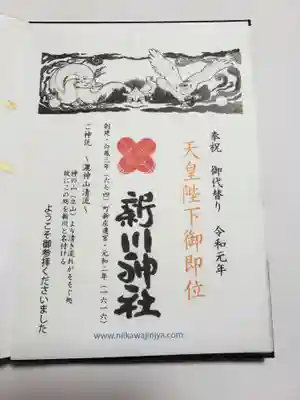 奉祝 御代替り 令和元年
天皇陛下御即位
新川神社
創建・白鳳三年(六七四)町新庄遷宮・元和二年(一六一六)
ご神託 ～灑神山清流～
神の山(立山)より清き流れがそそぐ処
故にこの処を新川と名付ける
ようこそ御参拝くださいました
www.niikawajinjya.com